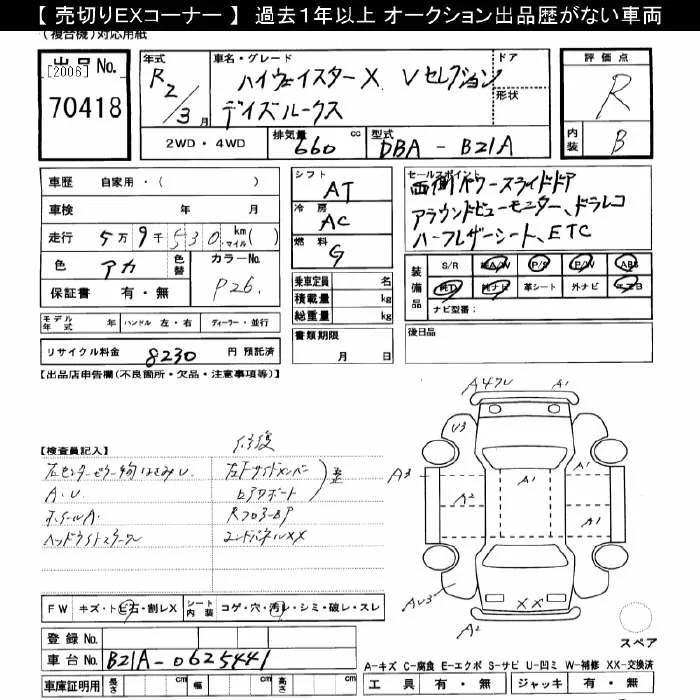 【 売切りEXコーナー 】 過去1年以上 オークション出品歴がない車両
(複合機)対応用紙
出品No.
[2006]
70418
年式
R2/3月
車名・グレード
ハイウェイスターX Vセレクション
デイズルークス
ドア
形状
評価点
R
内装
B
2WD・4WD
排気量
660
cc
型式
DBA - B21A
車歴 自家用・( )
車検 年 月
走行 5万9千530 km マイル ( )
色 アカ 色替
カラーNo.
P26.
保証書 有・無
シフト
AT
冷房
AC
燃料
G
乗車定員 名
積載量 kg
総重量 kg
セールスポイント
両側パワースライドドア
アラウンドビューモニター、ドラレコ
ハーフレザーシート、ETC
装備品
S/R
純A/W
P/S
P/W
ABS
純TV
純ナビ
革シート
外ナビ
エアB
ナビ型番:
モデル年式 年
ハンドル 左・右
ディーラー・並行
リサイクル料金 8230 円 預託済
書類期限
月 日
後日品
【出品店申告欄(不良箇所・欠品・注意事項等)】
【検査員記入】
修復
A.U
ホイールA.
RフロアーBP
ヘッドライトスケール
エンドパネルXX
A4U
A1
U3
A3
A2
A1
A1
A1
AU3
XX
A2
スペア
FW キズ・トビ石・割レX
シート内装 コゲ・穴・汚レ・シミ・破レ・スレ
登録No.
車台No. B21A-0625441
車庫証明用 長さ cm 幅 cm 高さ cm
A-キズ C-腐食 E-エクボ S-サビ U-凹ミ W-補修 XX-交換済
工具 有・無 ジャッキ 有・無